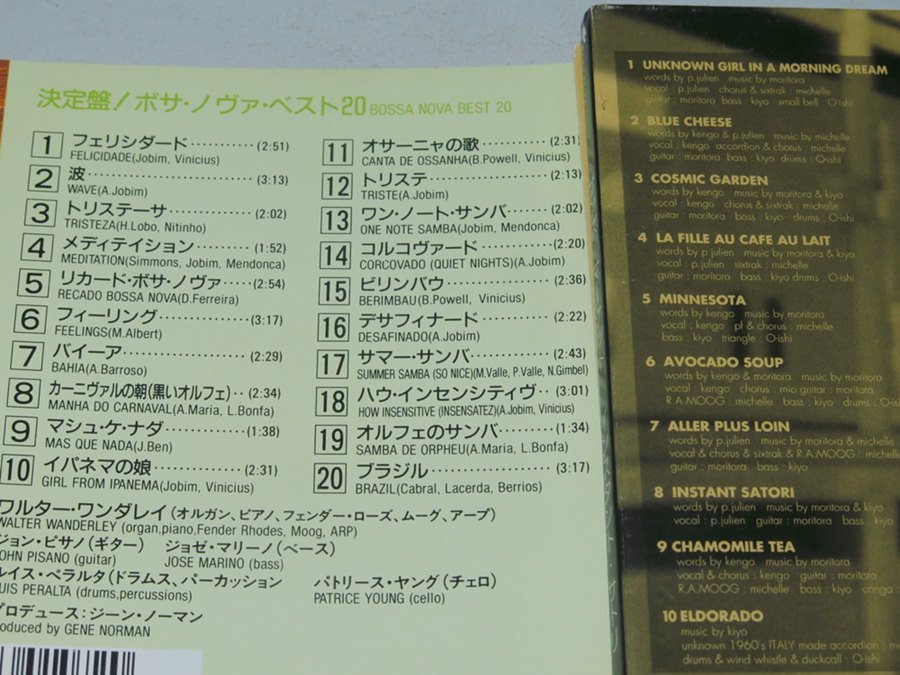 決定盤！ボサ・ノヴァ・ベスト20 BOSSA NOVA BEST 20
1 フェリシダード (2:51)
FELICIDADE(Jobim, Vinicius)
2 波 (3:13)
WAVE(A.Jobim)
3 トリステーサ (2:02)
TRISTEZA(H.Lobo, Nitinho)
4 メディテイション (1:52)
MEDITATION(Simmons, Jobim, Mendonca)
5 リカード・ボサ・ノヴァ (2:54)
RECADO BOSSA NOVA(D.Ferreira)
6 フィーリング (3:17)
FEELINGS(M.Albert)
7 バイーア (2:29)
BAHIA(A.Barroso)
8 カーニヴァルの朝(黒いオルフェ) (2:34)
MANHA DO CARNAVAL(A.Maria, L.Bonfa)
9 マシュ・ケ・ナダ (1:38)
MAS QUE NADA(J.Ben)
10 イパネマの娘 (2:31)
GIRL FROM IPANEMA(Jobim, Vinicius)
11 オサーニャの歌 (2:31)
CANTA DE OSSANHA(B.Powell, Vinicius)
12 トリステ (2:13)
TRISTE(A.Jobim)
13 ワン・ノート・サンバ (2:02)
ONE NOTE SAMBA(Jobim, Mendonca)
14 コルコヴァード (2:20)
CORCOVADO (QUIET NIGHTS)(A.Jobim)
15 ビリンバウ (2:36)
BERIMBAU(B.Powell, Vinicius)
16 デサフィナード (2:22)
DESAFINADO(A.Jobim)
17 サマー・サンバ (2:43)
SUMMER SAMBA (SO NICE)(M.Valle, P.Valle, N.Gimbel)
18 ハウ・インセンシティヴ (3:01)
HOW INSENSITIVE (INSENSATEZ)(A.Jobim, Vinicius)
19 オルフェのサンバ (1:34)
SAMBA DE ORPHEU(A.Maria, L.Bonfa)
20 ブラジル (3:17)
BRAZIL(Cabral, Lacerda, Berrios)
ワルター・ワンダレイ(オルガン、ピアノ、フェンダー・ローズ、ムーグ、アープ)
WALTER WANDERLEY (organ,piano,Fender Rhodes, Moog, ARP)
ジョン・ピサノ(ギター) ジョゼ・マリーノ(ベース)
JOHN PISANO (guitar) JOSE MARINO (bass)
ルイス・ペラルタ(ドラムス、パーカッション パトリース・ヤング(チェロ)
LUIS PERALTA (drums,percussions) PATRICE YOUNG (cello)
プロデュース：ジーン・ノーマン
roduced by GENE NORMAN
1 UNKNOWN GIRL IN A MORNING DREAM
words by p.julien music by moritora
vocal : p.julien chorus & sixtrak : michelle
guitar : moritora bass : kiyo small bell : O-ishi
2 BLUE CHEESE
words by kengo & p.julien music by michelle
vocal : kengo accordion & chorus : michelle
guitar : moritora bass : kiyo drums : O-ishi
3 COSMIC GARDEN
words by kengo music by moritora & kiyo
vocal : kengo chorus & sixtrak : michelle
guitar : moritora bass : kiyo drums : O-ishi
4 LA FILLE AU CAFE AU LAIT
words by p.julien music by moritora & kiyo
vocal : p.julien sixtrak : michelle
guitar : moritora bass : kiyo drums : O-ishi
5 MINNESOTA
words by kengo music by moritora
vocal : kengo pf & chorus : michelle
bass : kiyo triangle : O-ishi
6 AVOCADO SOUP
words by kengo & moritora music by moritora
vocal : kengo chorus : mio guitar : moritora
R.A.MOOG : michelle bass : kiyo drums : O-ishi
7 ALLER PLUS LOIN
words by p.julien music by moritora & michelle
vocal & chorus & sixtrak & R.A.MOOG : michelle
guitar : moritora bass : kiyo
8 INSTANT SATORI
words by p.julien music by moritora & kiyo
vocal : p.julien guitar : moritora bass : kiyo
9 CHAMOMILE TEA
words by kengo music by moritora
vocal & chorus : kengo guitar : moritora
R.A.MOOG : michelle bass : kiyo conga :
10 ELDORADO
music by kiyo
unknown 1960's ITALY made accordion :
drums & wind whistle & duckcall : O-ishi